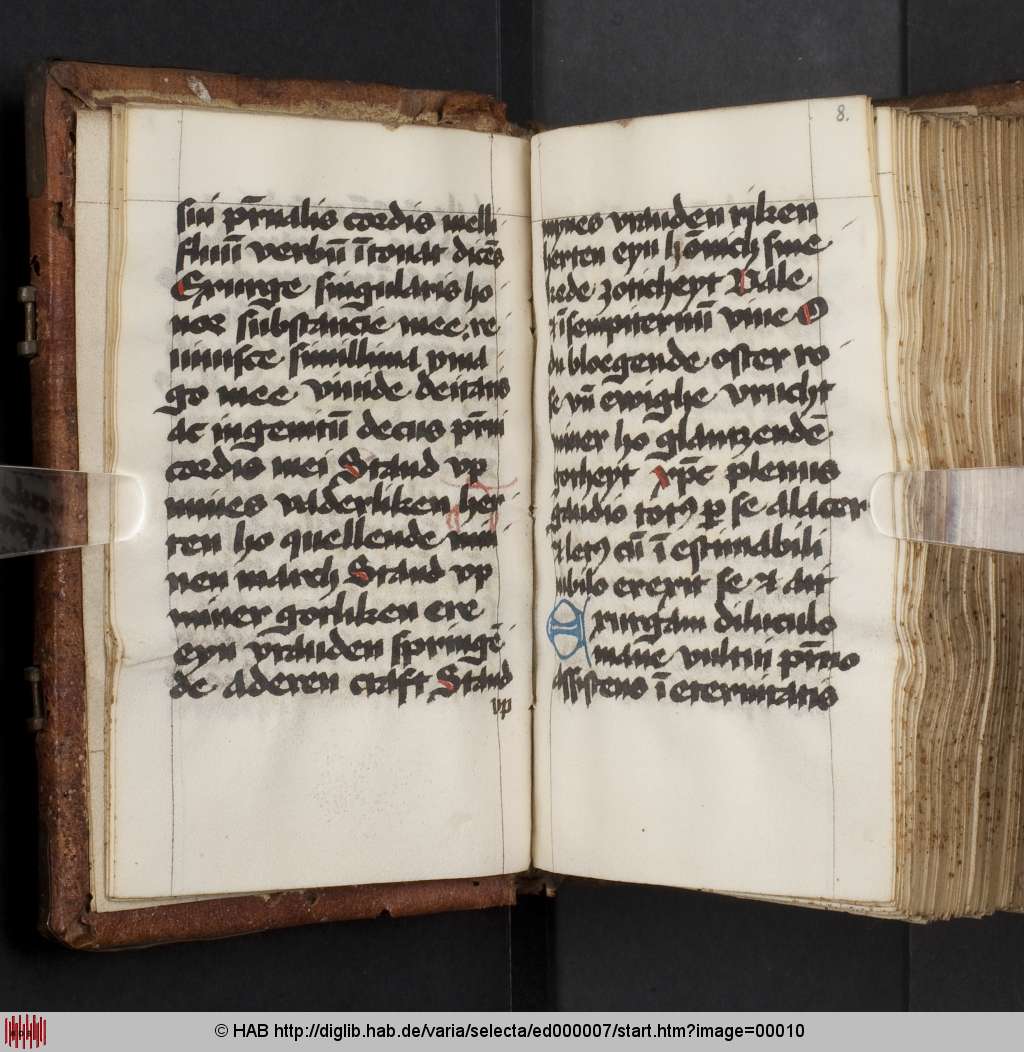 sui pr̄nalis cordis melli
fluuū verbū ītonat dicēs
Exurge singularis ho
nor substancie mee, re
miniscē simillima yma
go mee viuide deitatis
ac ingenitū decus pr̄ni
cordis mei Stand vp
mines vaderliken her
ten ho quellende min
nen march Stand vp
miner gotliken ere
eyn vrauden springē
de aderen craft Stand
vp
8.
mynes vrauden riken
herten eyn hōnich sme
kede zoticheyt Vale
ī sempiternū viue O
du bloegende oster ro
se vn̄ ewighe vrucht
miner ho glantzendē
gotheyt Xp̄c plenus
gaudio totꝯ ꝑ se alacer
letꝯ cū īestimabili
iubilo erexit se ⁊ ait
Exurgam diluculo
mane vultui pr̄no
assistens ī eternitatis
© HAB http://diglib.hab.de/varia/selecta/ed000007/start.htm?image=00010